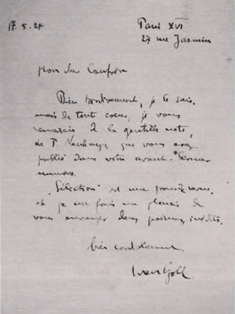 17.5.27 Paris XVI
27 rue Jasmin
Mon cher Confrère
Bien tardivement, je le sais,
mais de tout coeur, je vous
remercie de la gentille note,
de P. Neuhuys, que vous avez
publié dans votre avant-dernier
numéro.
"Sélection" est une
et je me fais un plaisir de
vous envoyer deux poèmes inédits.
très cordialement
Ivan Goll